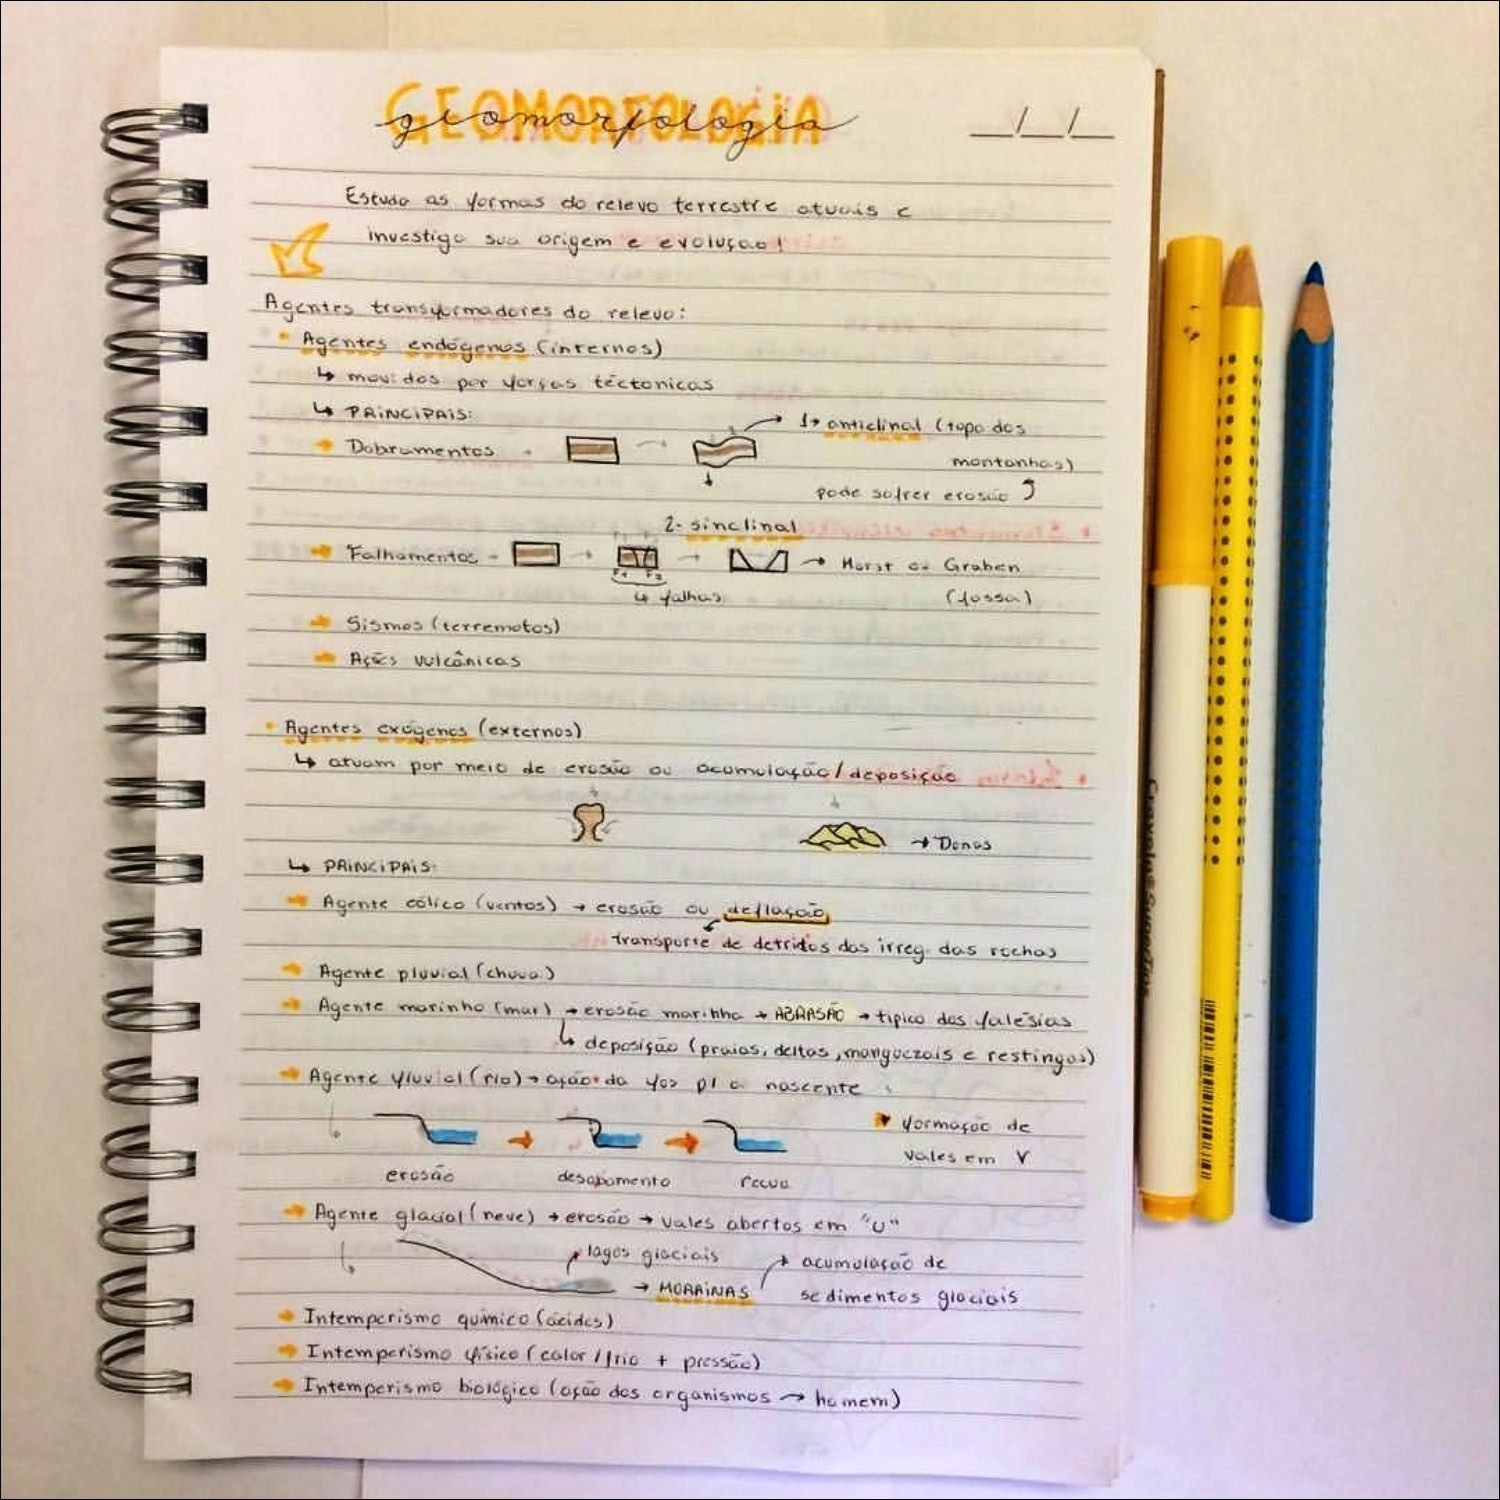 GEOMORFOLOGIA
geomorfologia
__/__/__
Estuda as formas do relevo terrestre atuais e
investiga sua origem e evolução!
Agentes transformadores do relevo:
• Agentes endógenos (internos)
↳ movidos por forças tectonicas
↳ PRINCIPAIS:
→ Dobramentos → → 1→ anticlinal (topo das
montanhas)
pode sofrer erosão
2- sinclinal
→ Falhamentos - → → → Horst ou Graben
F1 F2
↳ falhas (fossa)
→ Sismos (terremotos)
→ Ações vulcânicas
• Agentes exógenos (externos)
↳ atuam por meio de erosão ou acumulação/deposição
→ Dunas
↳ PRINCIPAIS:
→ Agente eólico (ventos) → erosão ou deflação
transporte de detritos das irreg. das rochas
→ Agente pluvial (chuva)
→ Agente marinho (mar) → erosão marinha → ABRASÃO → tipico das falésias
↳ deposição (praias, deltas, manguezais e restingas)
→ Agente fluvial (rio) → ação da foz p/ a nascente
formação de
vales em V
erosão desabamento recuo
→ Agente glacial (neve) → erosão → vales abertos em "U"
lagos glaciais
acumulação de
→ MORAINAS
sedimentos glaciais
→ Intemperismo químico (ácidos)
→ Intemperismo físico (calor/frio + pressão)
→ Intemperismo biológico (ação dos organismos → homem)